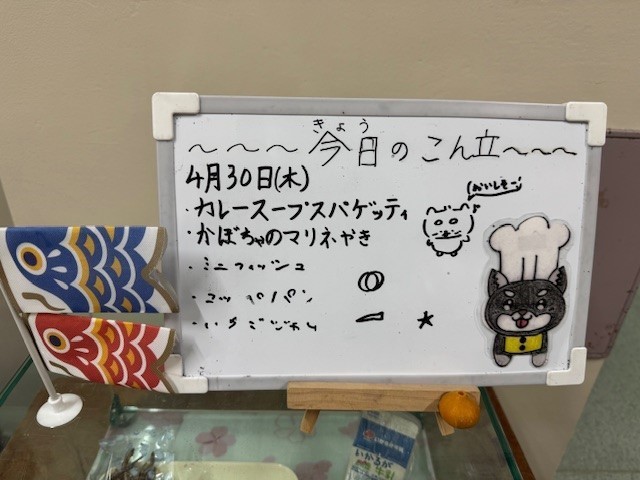 きょう
～～～今日のこん立～～～
4月30日(木)
・カレースープスパゲッティ
・かぼちゃのマリネやき
・ミニフィッシュ
・コッペパン
・いちごジャム
おいしそー
いかるが